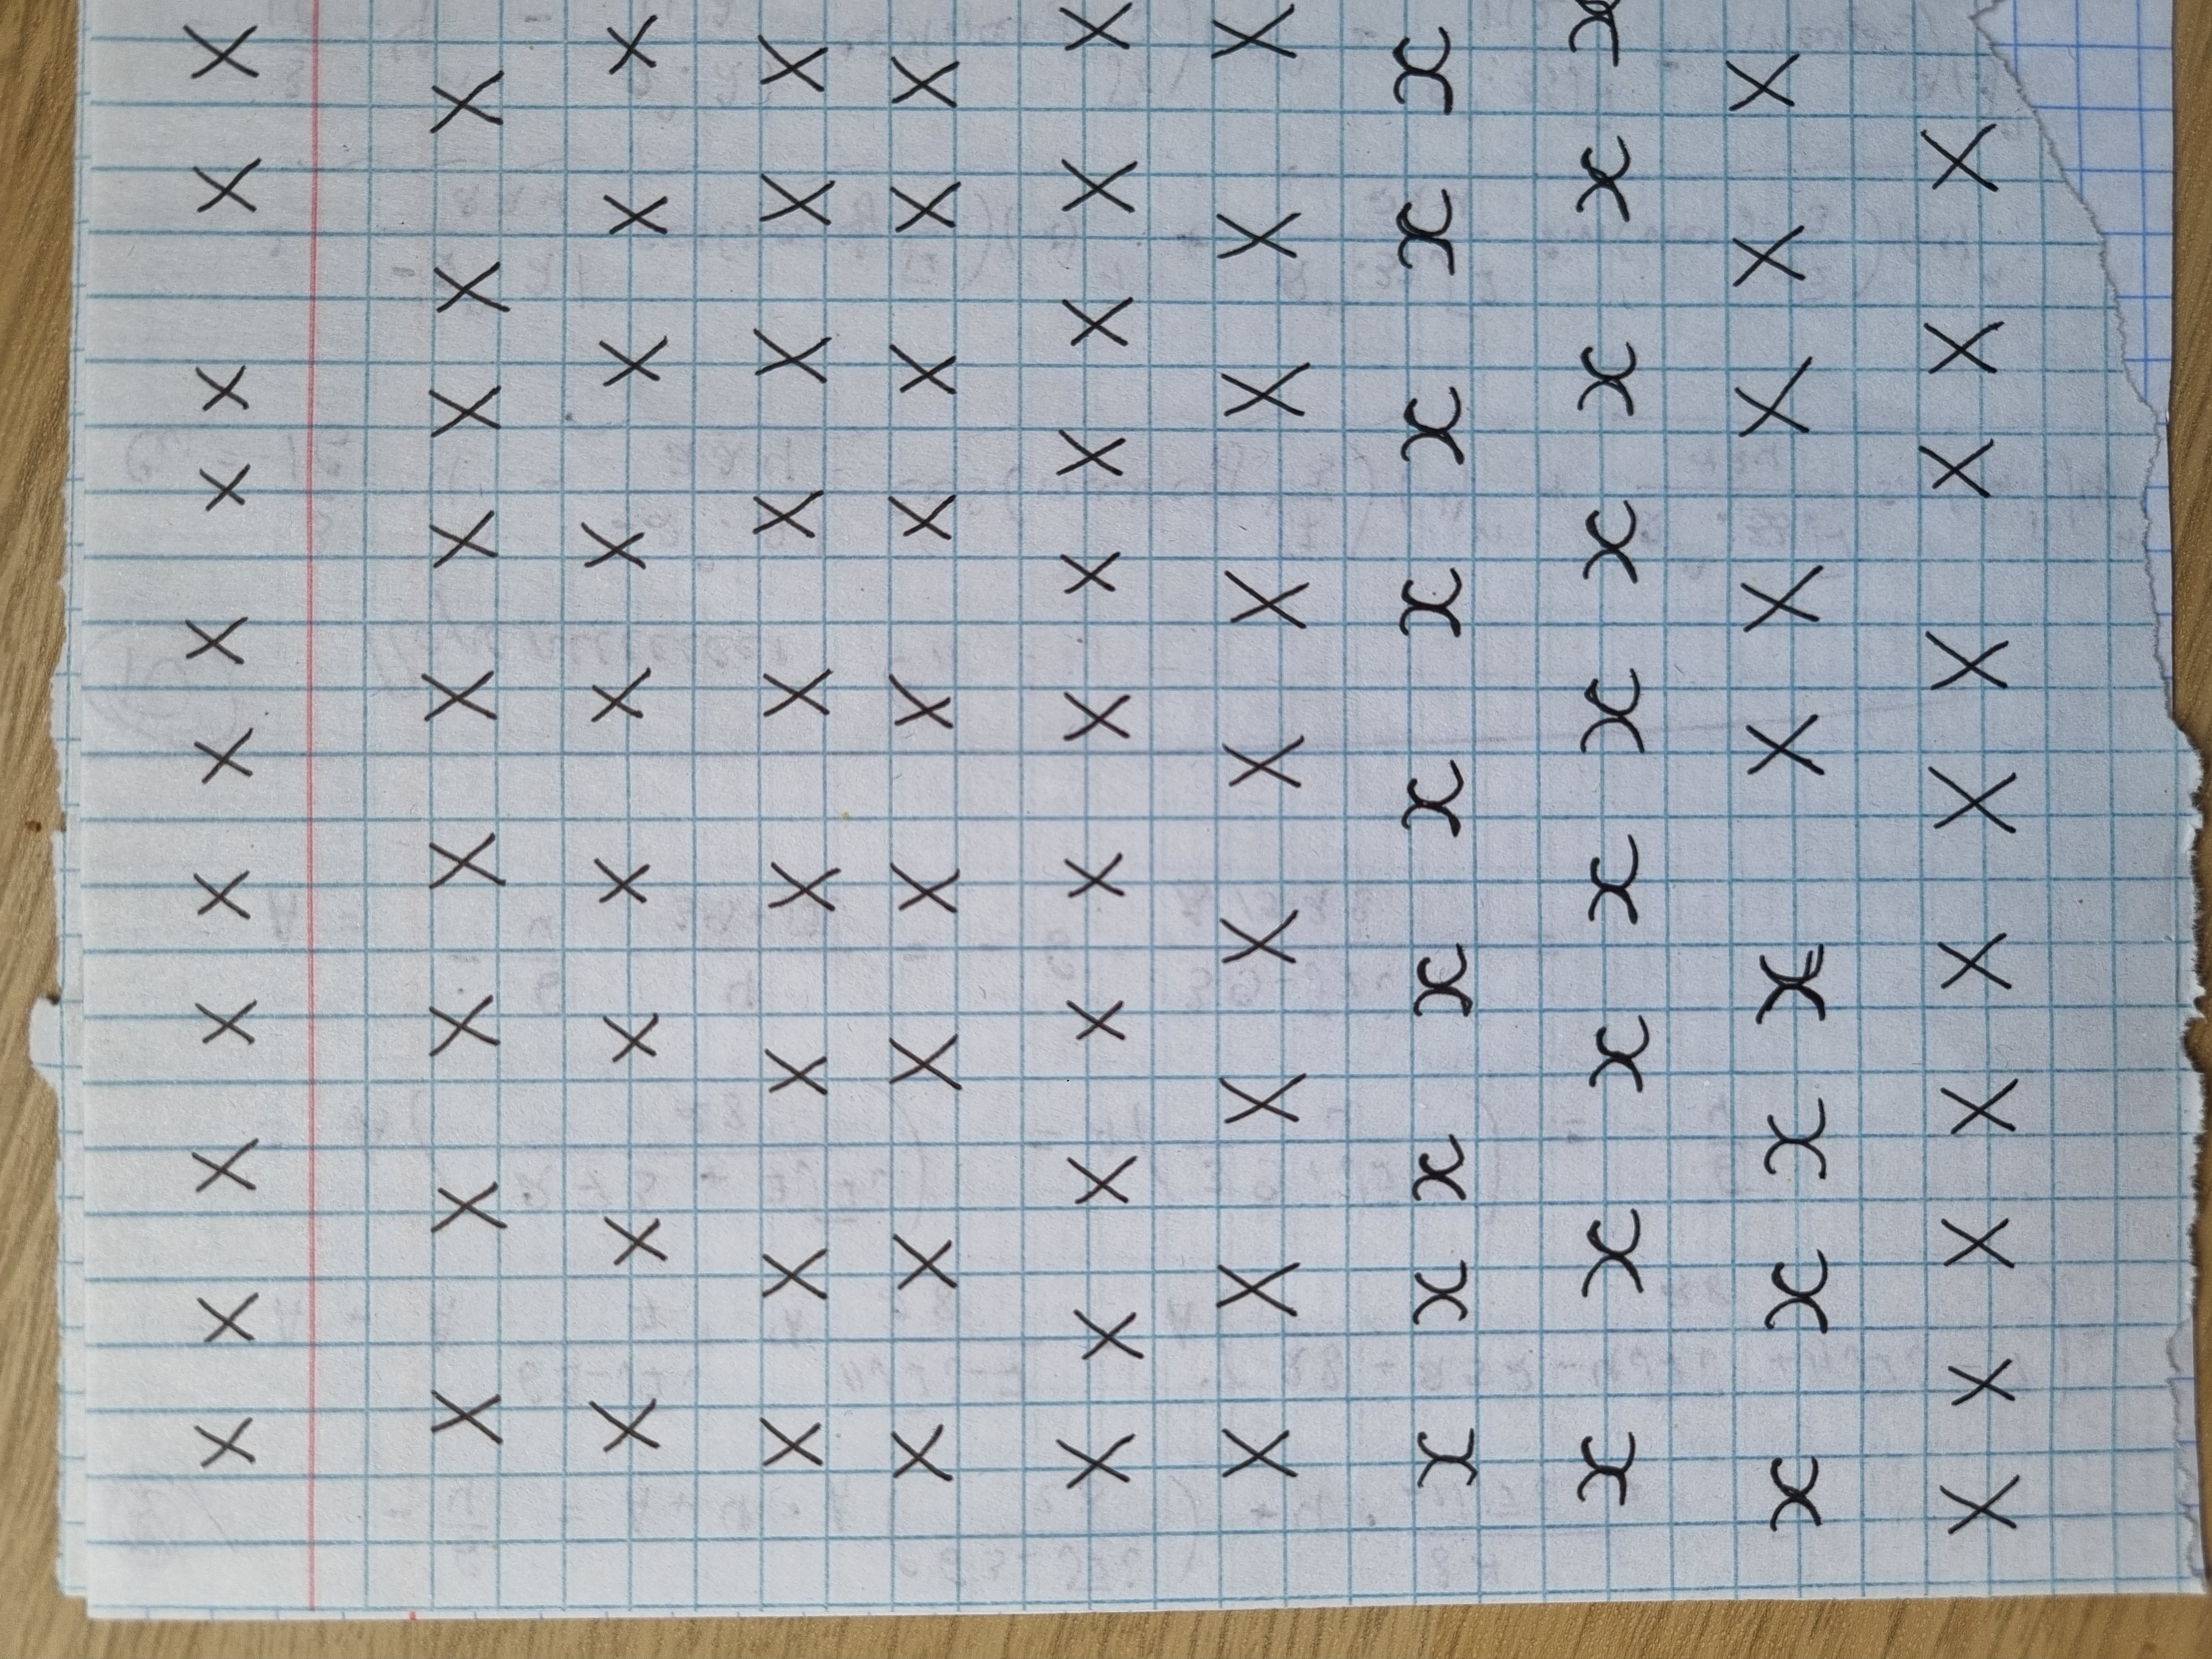 x x x x x x x x x x x
x x x x x x x x x
x x x x x x x x x
x x x x x x x x x
x x x x x x x x x
x x x x x x x x x x x
x x x x x x x x x
x x x x x x x x x
x x x x x x x x x
x x x x x x x x x
x x x x x x x x x x